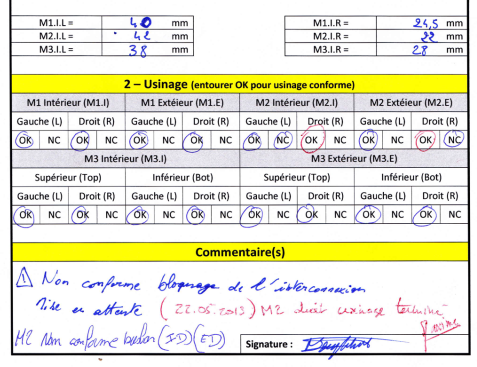 M1.I.L = 40 mm M1.I.R = 24,5 mm
M2.I.L = 42 mm M2.I.R = 22 mm
M3.I.L = 38 mm M3.I.R = 28 mm
2 – Usinage (entourer OK pour usinage conforme)
M1 Intérieur (M1.I) M1 Extéieur (M1.E) M2 Intérieur (M2.I) M2 Extérieur (M2.E)
Gauche (L) Droit (R) Gauche (L) Droit (R) Gauche (L) Droit (R) Gauche (L) Droit (R)
OK NC OK NC OK NC OK NC OK NC OK NC OK NC OK NC
M3 Intérieur (M3.I) M3 Extérieur (M3.E)
Supérieur (Top) Inférieur (Bot) Supérieur (Top) Inférieur (Bot)
Gauche (L) Droit (R) Gauche (L) Droit (R) Gauche (L) Droit (R) Gauche (L) Droit (R)
OK NC OK NC OK NC OK NC OK NC OK NC OK NC OK NC
Commentaire(s)
Non conforme bloquage de l'interconnexion
Mise en attente (22.05.2013) M2 droit usinage terminé
M2 Non conforme (I-D) (E-D)
Signature :